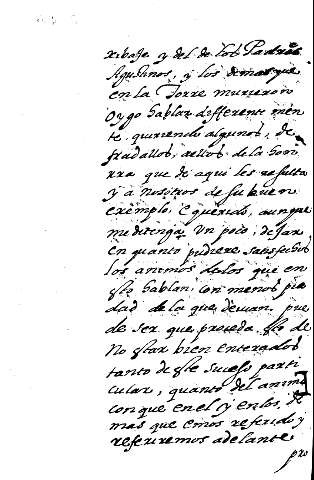 xibaſſe y del de los Padres
Agustinos, y los demas que
en la Torre murieron
oygo hablar differente men
te quiriendo algunos, de
fradallos, a ellos de la hon
rra que de aqui les resulta
y a nosotros de su buen
exemplo, E querido, aunque
me detenga Un poco, dejar
en quanto pudiere satisfechos
los animos delos que en
esto hablan con menos pie
dad de la que devian. pue
de ser que proceda esto de
No estar bien enterados
tanto de este suceso parti
cular, quanto del animo
con que en el y en los, de
mas que emos referido y
referiremos adelante
pro